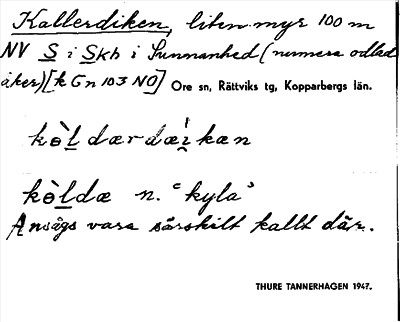 Kallerdiken, liten myr 100 m
NV S i Skh i Sunnanhed (numera odlad
åker) [k Gn 103 NO] Ore sn, Rättviks tg, Kopparbergs län.
kö̀ldærdæi̯kæn
kö̀ldæ n. "kyla"
Ansågs vara särskilt kallt där.
THURE TANNERHAGEN 1947.